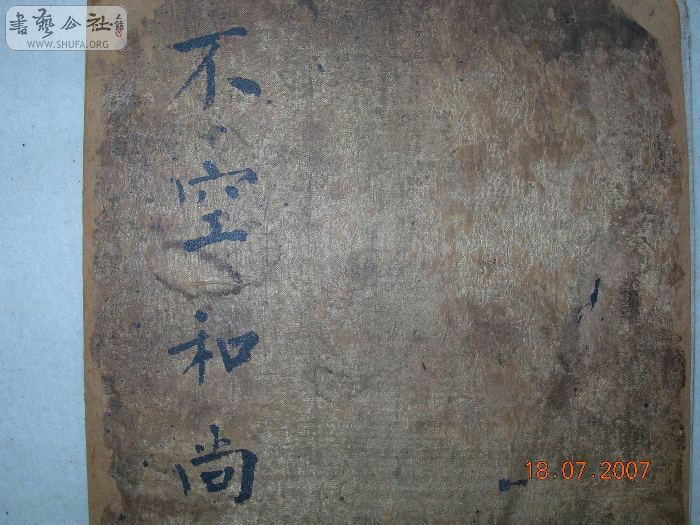 書藝公社
WWW.SHUFA.ORG
不空和尚
18.07.2007